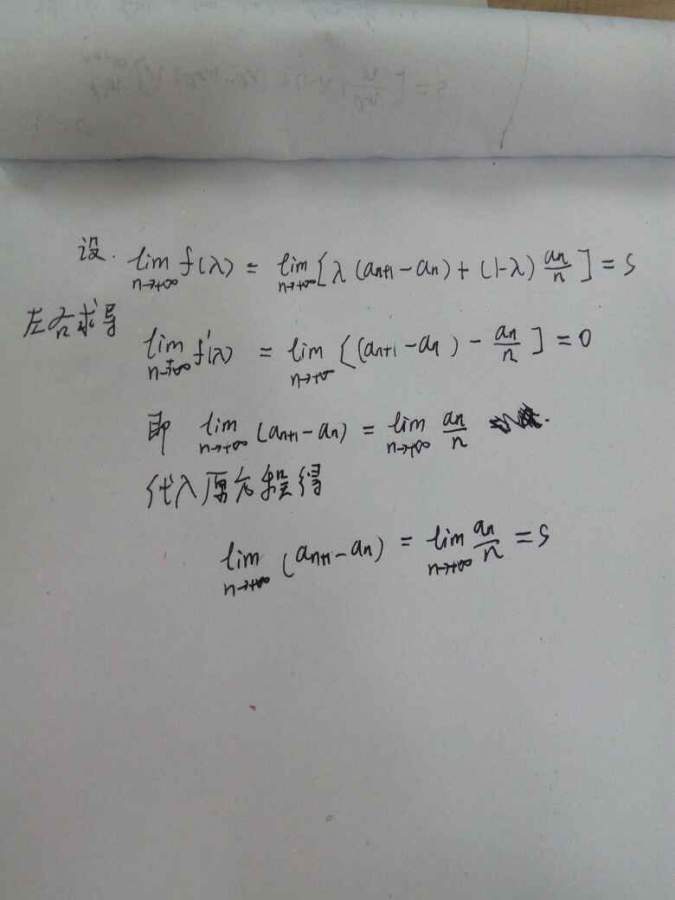 设. lim_{n→+∞} f(λ) = lim_{n→+∞} [λ(a_{n+1}-a_n)+(1-λ) a_n/n] = s
左右求导
lim_{n→+∞} f'(λ) = lim_{n→+∞} [(a_{n+1}-a_n) - a_n/n] = 0
即 lim_{n→+∞} (a_{n+1}-a_n) = lim_{n→+∞} a_n/n
代入原方程得
lim_{n→+∞} (a_{n+1}-a_n) = lim_{n→+∞} a_n/n = s